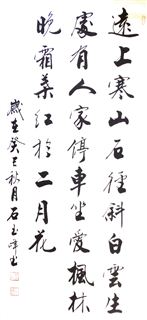 遠上寒山石徑斜白雲生
處有人家停車坐愛楓林
晚霜葉紅於二月花
歲在癸巳秋月石玉